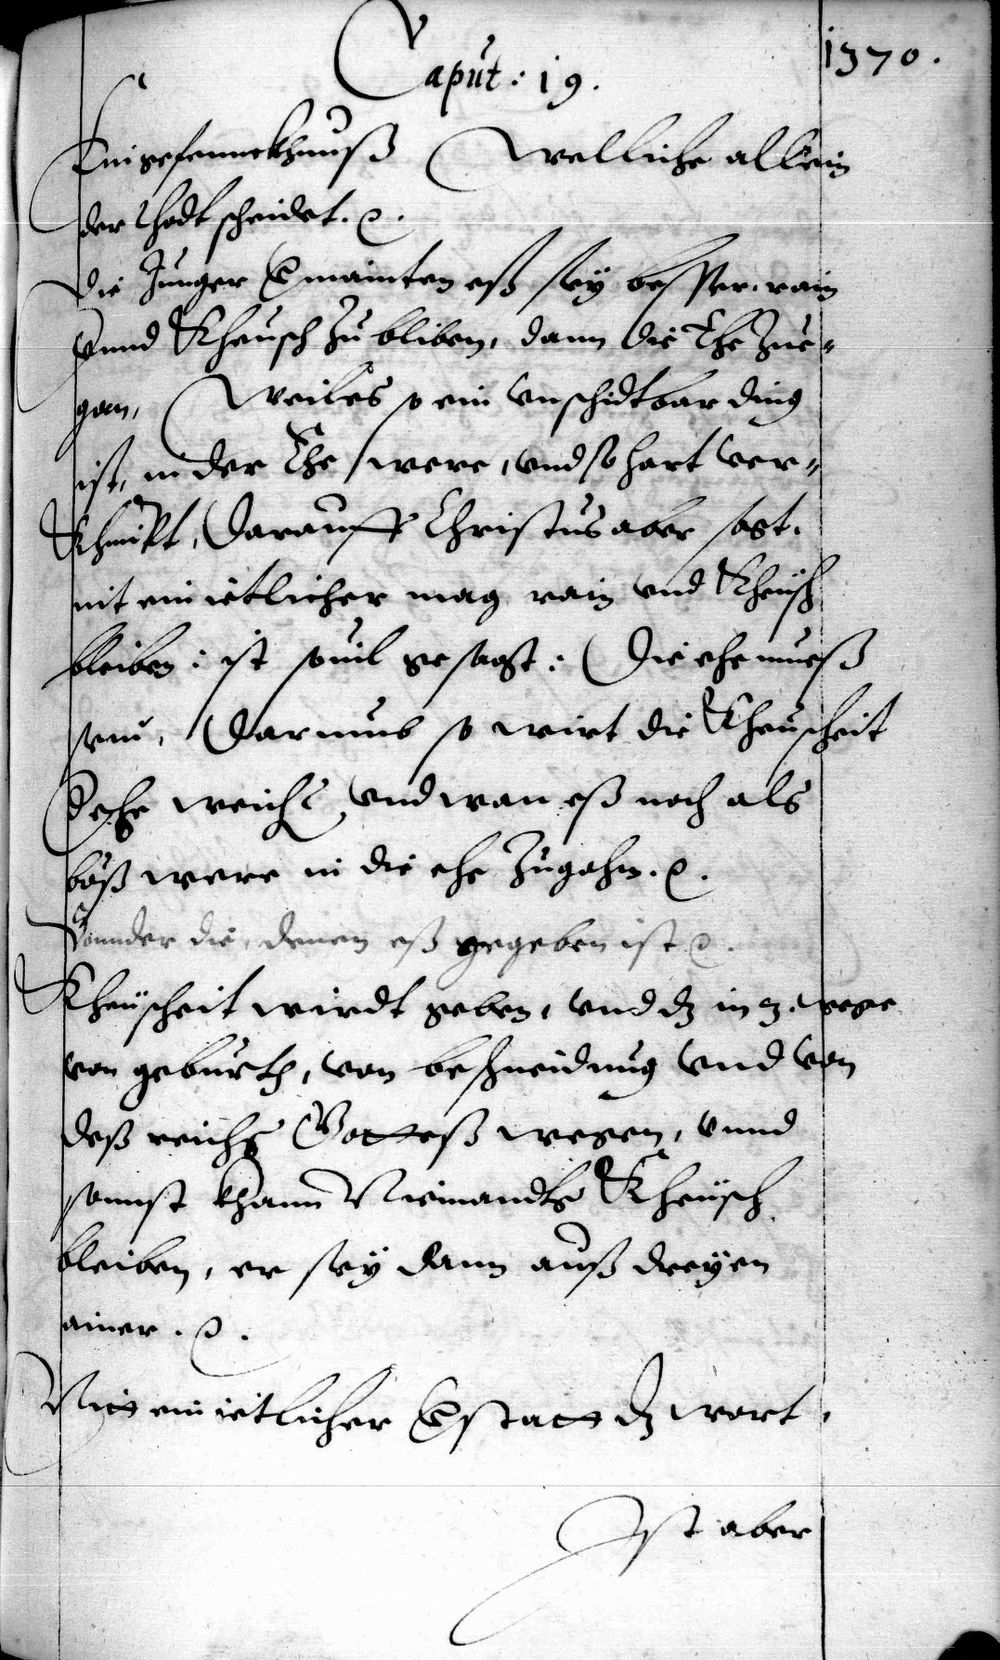 Caput: 19.
1370.
Ein gefennckhnuß Welliche allein
der thodt scheidet. ꝛc.
Die Junger Vermainten eß sey besser, rain
Vnnd Kheusch zu bliben, dann die Ehe Zue-
gan, Weil es so ein vnschidtbar ding
ist, in der Ehe were, vnd so hart ver-
Khnüpt, Darauff Christus aber sagt.
nit ein ietlicher mag rain vnd Kheusch
bleiben: ist souil gesagt: Die ehe mueß
sein, Darumb so wirt die Kheüscheit
vnd wan eß noch als
böß were in die ehe Zugehn. ꝛc.
Sonnder die, denen eß gegeben ist ꝛc.
Kheüscheit wirdt geben, vnd dz in 3. wege
von geburth, von beschneidung vnd von
deß reichs Gotteß wegen, vnnd
sonnst khann Niemandts Kheüsch
bleiben, er sey dann auß dreyen
ainer. ꝛc.
Nitt ein ietlicher Verstatt dz wort,
Ist aber